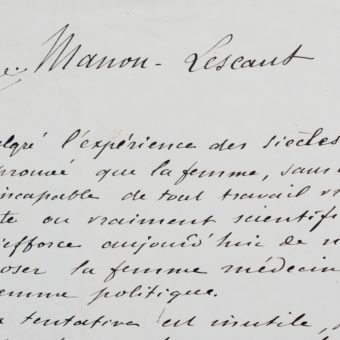 Manon-Lescaut
algré l'expérience des siècles
prouvé que la femme, sans
incapable de tout travail vr
te ou vraiment scientifi
efforce aujourd'hui de n
poser la femme médecin
emme politique.
a tentative est inutile,